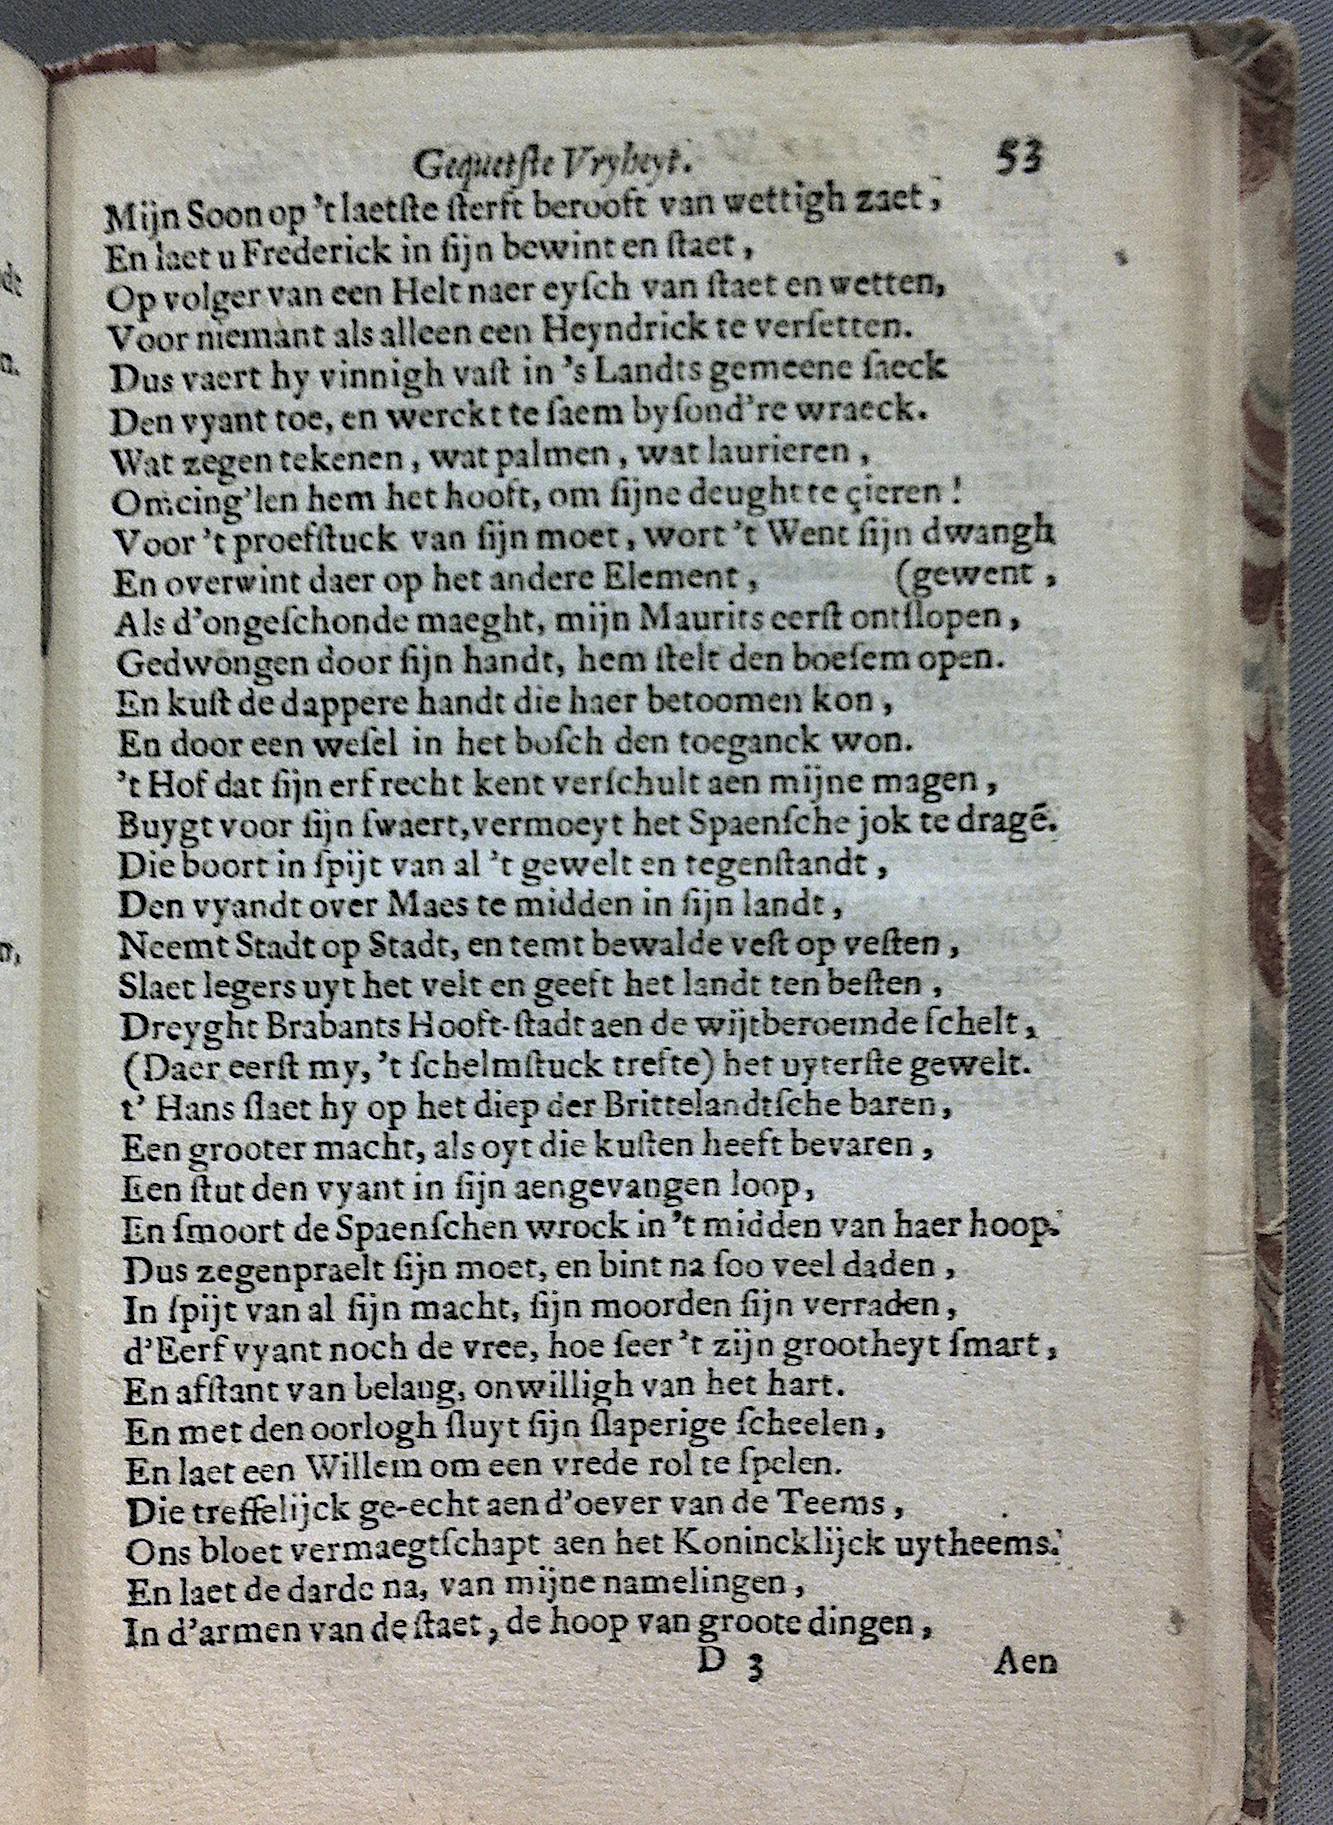 Gequetſte Vryheyt. 53
Mijn Soon op 't laetſte ſterft berooft van wettigh zaet,
En laet u Frederick in ſijn bewint en ſtaet,
Op volger van een Helt naer eyſch van ſtaet en wetten,
Voor niemant als alleen een Heyndrick te verſetten.
Dus vaert hy vinnigh vaſt in 's Landts gemeene ſaeck
Den vyant toe, en werckt te ſaem byſond're wraeck.
Wat zegen tekenen, wat palmen, wat laurieren,
Omcing'len hem het hooft, om ſijne deught te çieren!
Voor 't proefſtuck van ſijn moet, wort 't Went ſijn dwangh
En overwint daer op het andere Element, (gewent,
Als d'ongeſchonde maeght, mijn Maurits eerſt ontſlopen,
Gedwongen door ſijn handt, hem ſtelt den boeſem open.
En kuſt de dappere handt die haer betoomen kon,
En door een weſel in het boſch den toeganck won.
't Hof dat ſijn erf recht kent verſchult aen mijne magen,
Buygt voor ſijn ſwaert, vermoeyt het Spaenſche jok te dragẽ.
Die boort in ſpijt van al 't gewelt en tegenſtandt,
Den vyandt over Maes te midden in ſijn landt,
Neemt Stadt op Stadt, en temt bewalde veſt op veſten,
Slaet legers uyt het velt en geeft het landt ten beſten,
Dreyght Brabants Hooft-ſtadt aen de wijtberoemde ſchelt,
(Daer eerſt my, 't ſchelmſtuck trefte) het uyterſte gewelt.
t' Hans ſlaet hy op het diep der Brittelandtſche baren,
Een grooter macht, als oyt die kuſten heeft bevaren,
Een ſtut den vyant in ſijn aengevangen loop,
En ſmoort de Spaenſchen wrock in 't midden van haer hoop.
Dus zegenpraelt ſijn moet, en bint na ſoo veel daden,
In ſpijt van al ſijn macht, ſijn moorden ſijn verraden,
d'Eerf vyant noch de vree, hoe ſeer 't zijn grootheyt ſmart,
En afſtant van belang, onwilligh van het hart.
En met den oorlogh ſluyt ſijn ſlaperige ſcheelen,
En laet een Willem om een vrede rol te ſpelen.
Die treffelijck ge-echt aen d'oever van de Teems,
Ons bloet vermaegtſchapt aen het Konincklijck uytheems.
En laet de darde na, van mijne namelingen,
In d'armen van de ſtaet, de hoop van groote dingen,
D 3 Aen